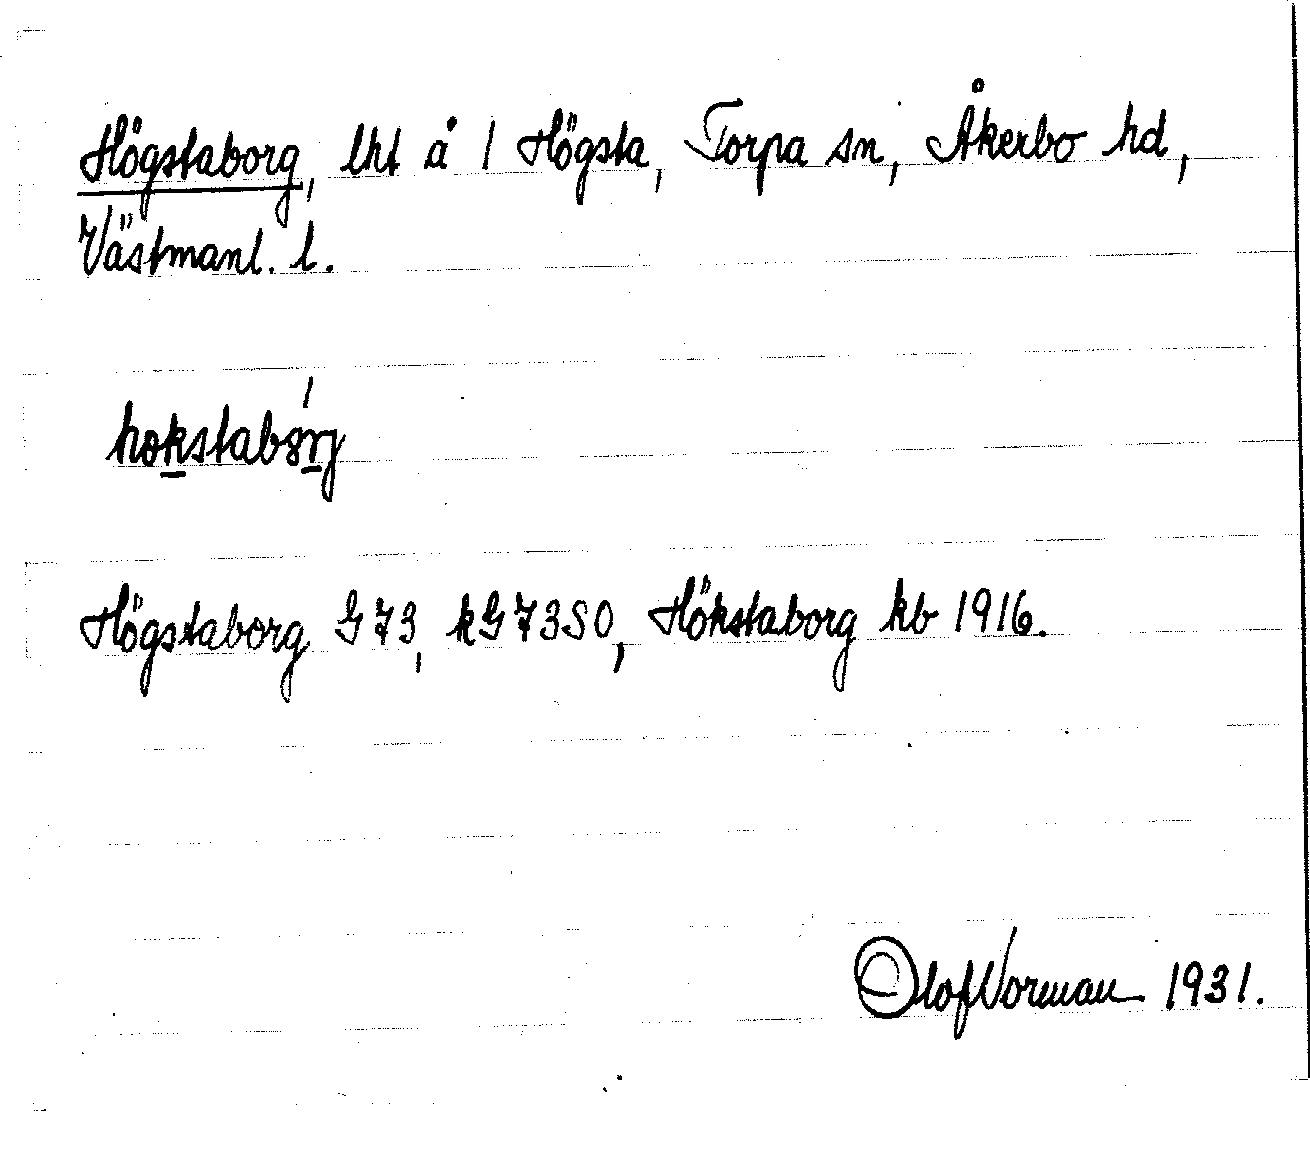 Högstaborg, lht å 1 Högsta, Torpa sn, Åkerbo hd,
Västmanl. l.
hokstabórj
Högstaborg G 73, kG 73 SO, Hökstaborg kb 1916.
Olof Norman 1931.